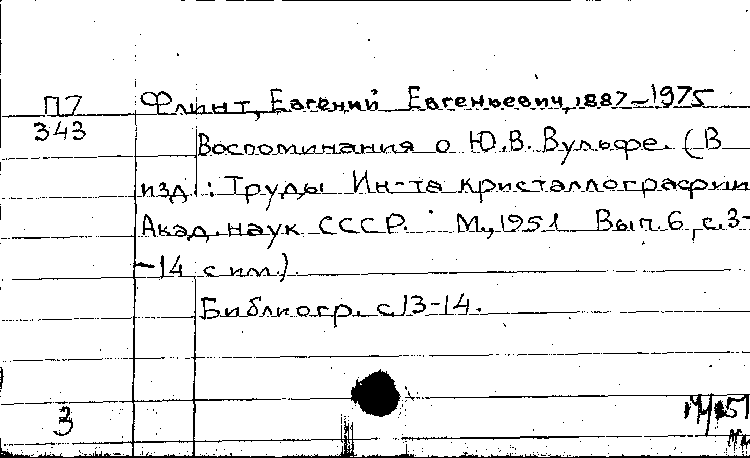 П7
343
Флинт, Евгений Евгеньевич, 1887-1975
Воспоминания о Ю.В. Вульфе. (В
изд.: Труды Ин-та кристаллографии
Акад. наук СССР. М., 1951 Вып. 6, с. 3-
-14 с илл.).
Библиогр. с. 13-14.
3